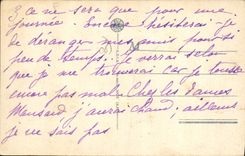 & ce ne sera que pour une
journée. Encore j'hésiterai-je
de déranger mes amis pour si
peu de temps. Je verrai selon
que je me trouverai car je tousse
encore pas mal. Chez les Dames
Mansard j'aurai chaud, ailleurs
je ne sais pas